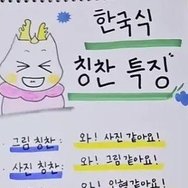 한국식
칭찬 특징
그림 칭찬: 와! 사진 같아요!
사진 칭찬: 와! 그림 같아요!
와! 인형 같아요!